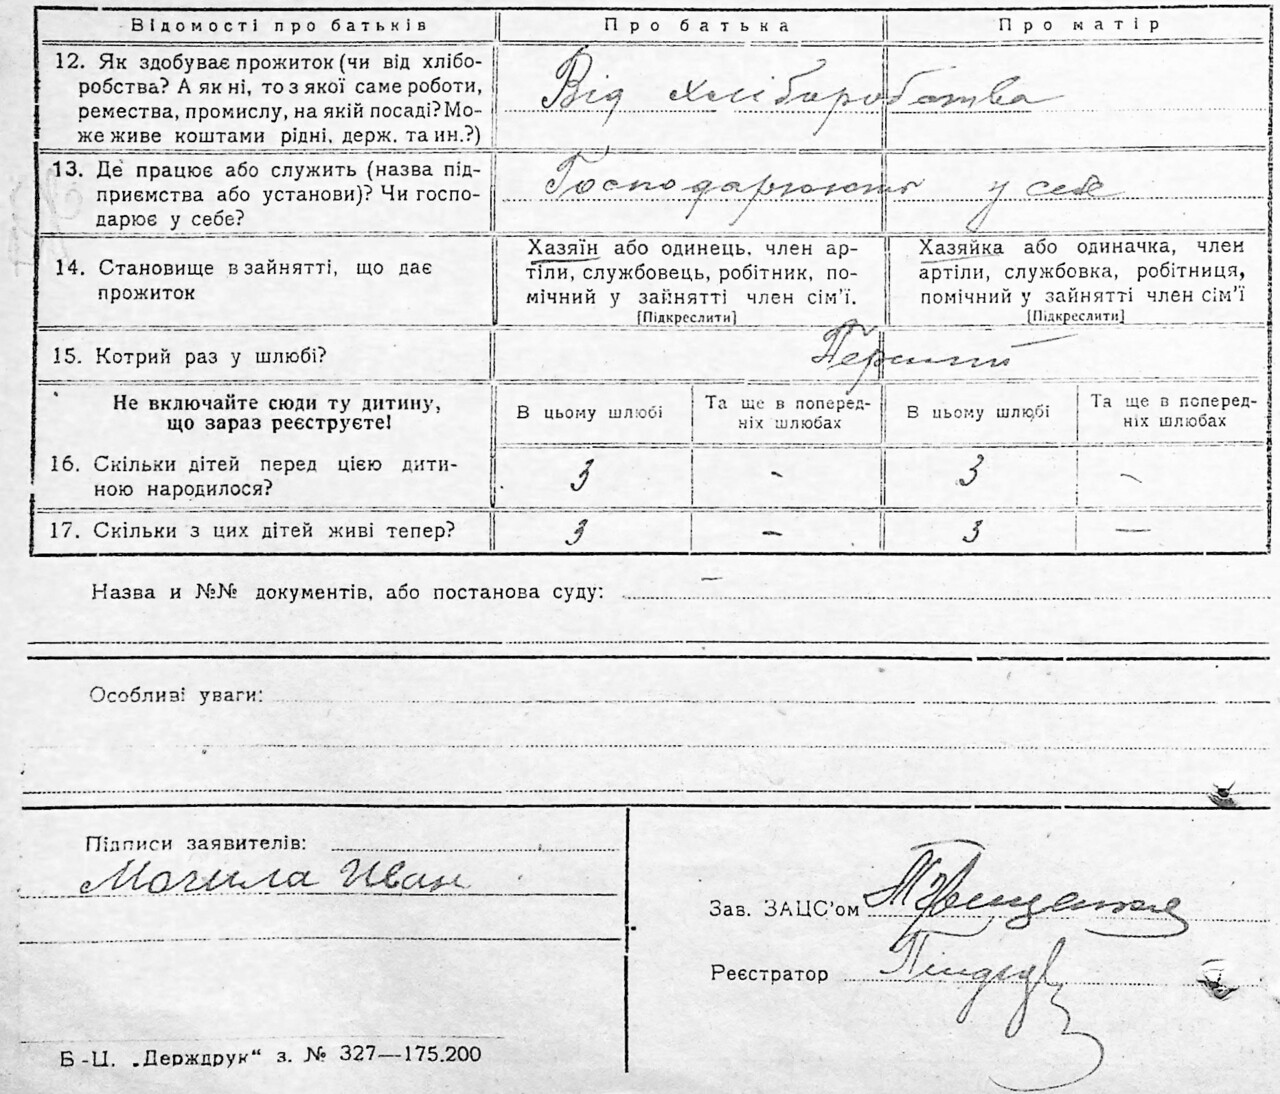 Відомості про батьків Про батька Про матір
12. Як здобуває прожиток (чи від хлібо-
робства? А як ні, то з якої саме роботи,
ремества, промислу, на якій посаді? Мо-
же живе коштами рідні, держ. та ин.?)
Від хліборобства
13. Де працює або служить (назва під-
приємства або установи)? Чи госпо-
дарює у себе?
Господарюють у себе
14. Становище в зайнятті, що дає
прожиток
Хазяїн або одинець, член ар-
тіли, службовець, робітник, по-
мічний у зайнятті член сім'ї.
[Підкреслити]
Хазяйка або одиначка, член
артіли, службовка, робітниця,
помічний у зайнятті член сім'ї
[Підкреслити]
15. Котрий раз у шлюбі? Перший
Не включайте сюди ту дитину,
що зараз реєструєте!
В цьому шлюбі
Та ще в поперед-
ніх шлюбах
В цьому шлюбі
Та ще в поперед-
ніх шлюбах
16. Скільки дітей перед цією дити-
ною народилося?
3 - 3 -
17. Скільки з цих дітей живі тепер? 3 - 3 —
Назва и №№ документів, або постанова суду: —
Особливі уваги:
Підписи заявителів:
Могила Иван
Зав. ЗАЦС'ом
Реєстратор
Б-Ц. „Держдрук“ з. № 327—175.200